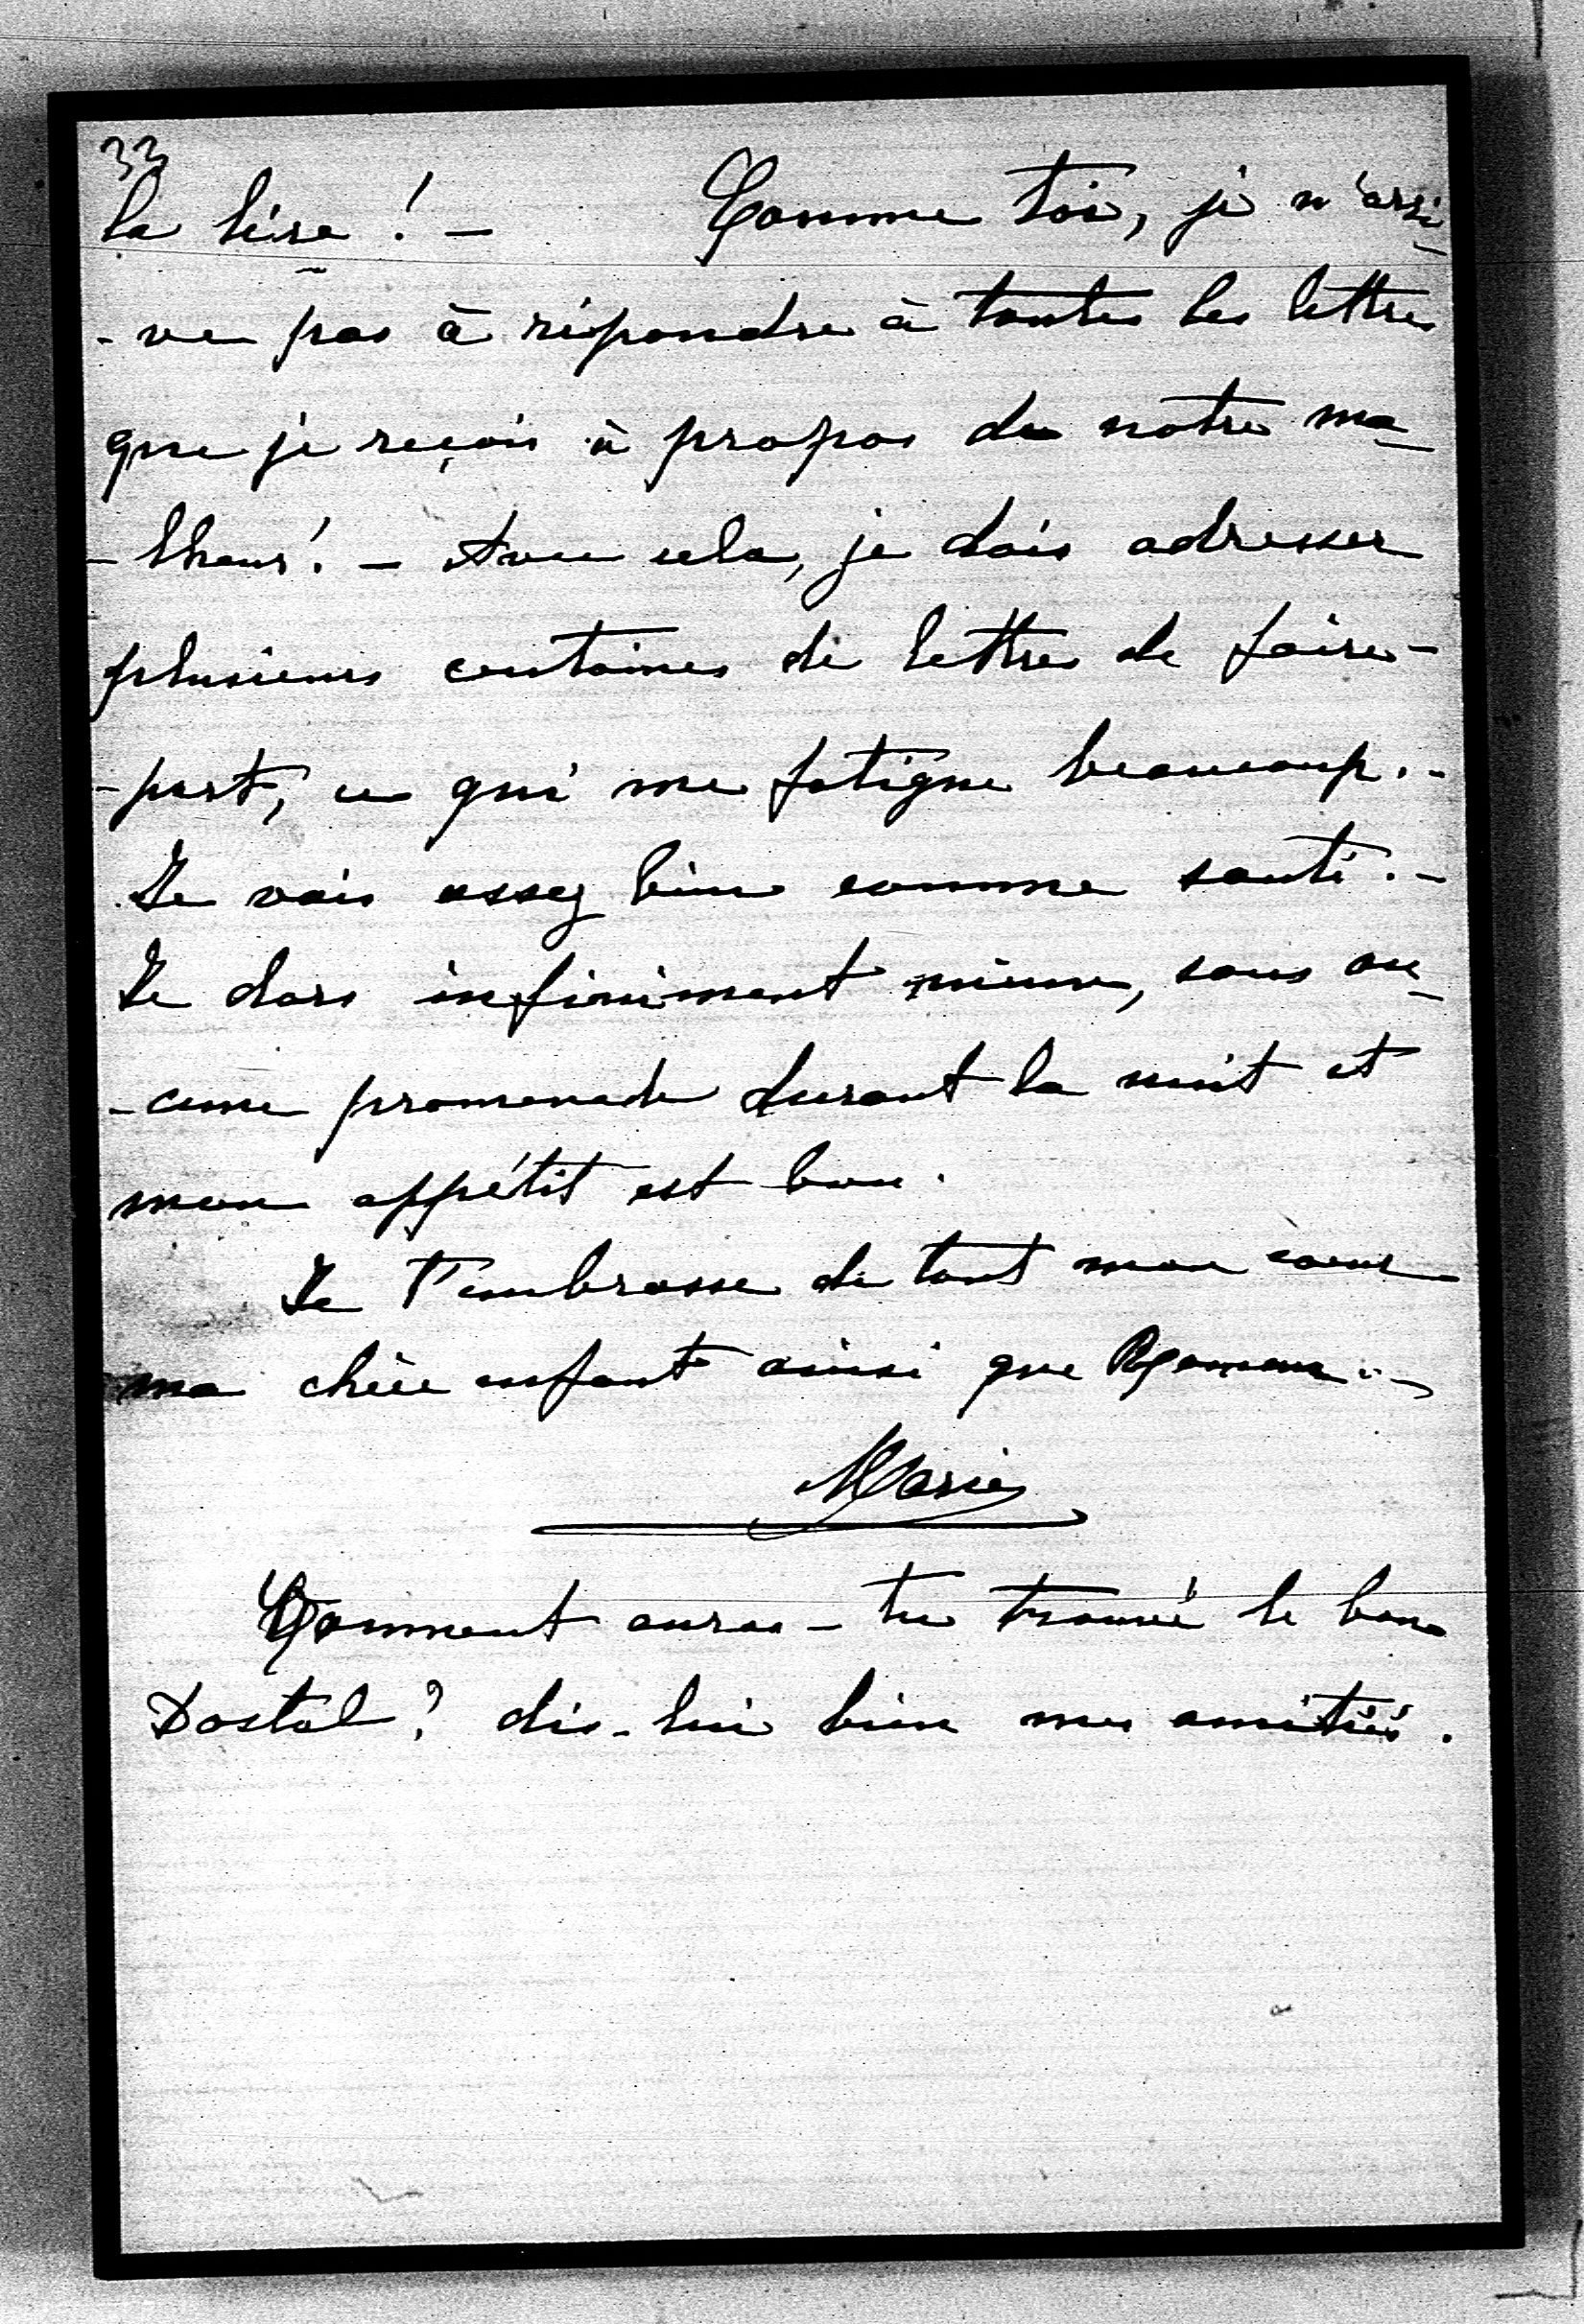 33
la lire ! — Comme toi, je n'arri-
-ve pas à répondre à toutes les lettres
que je reçois à propos de notre ma-
-lheur ! — Avec cela, je dois adresser
plusieurs centaines de lettres de faire-
-part, ce qui me fatigue beaucoup. -
Je vais assez bien comme santé. -
Je dors infiniment mieux, sans au-
-cune promenade durant la nuit et
mon appétit est bon.
Je t'embrasse de tout mon cœur
ma chère enfant ainsi que
Marie
Comment auras-tu trouvé le bon
Dostal ? dis-lui bien mes amitiés.